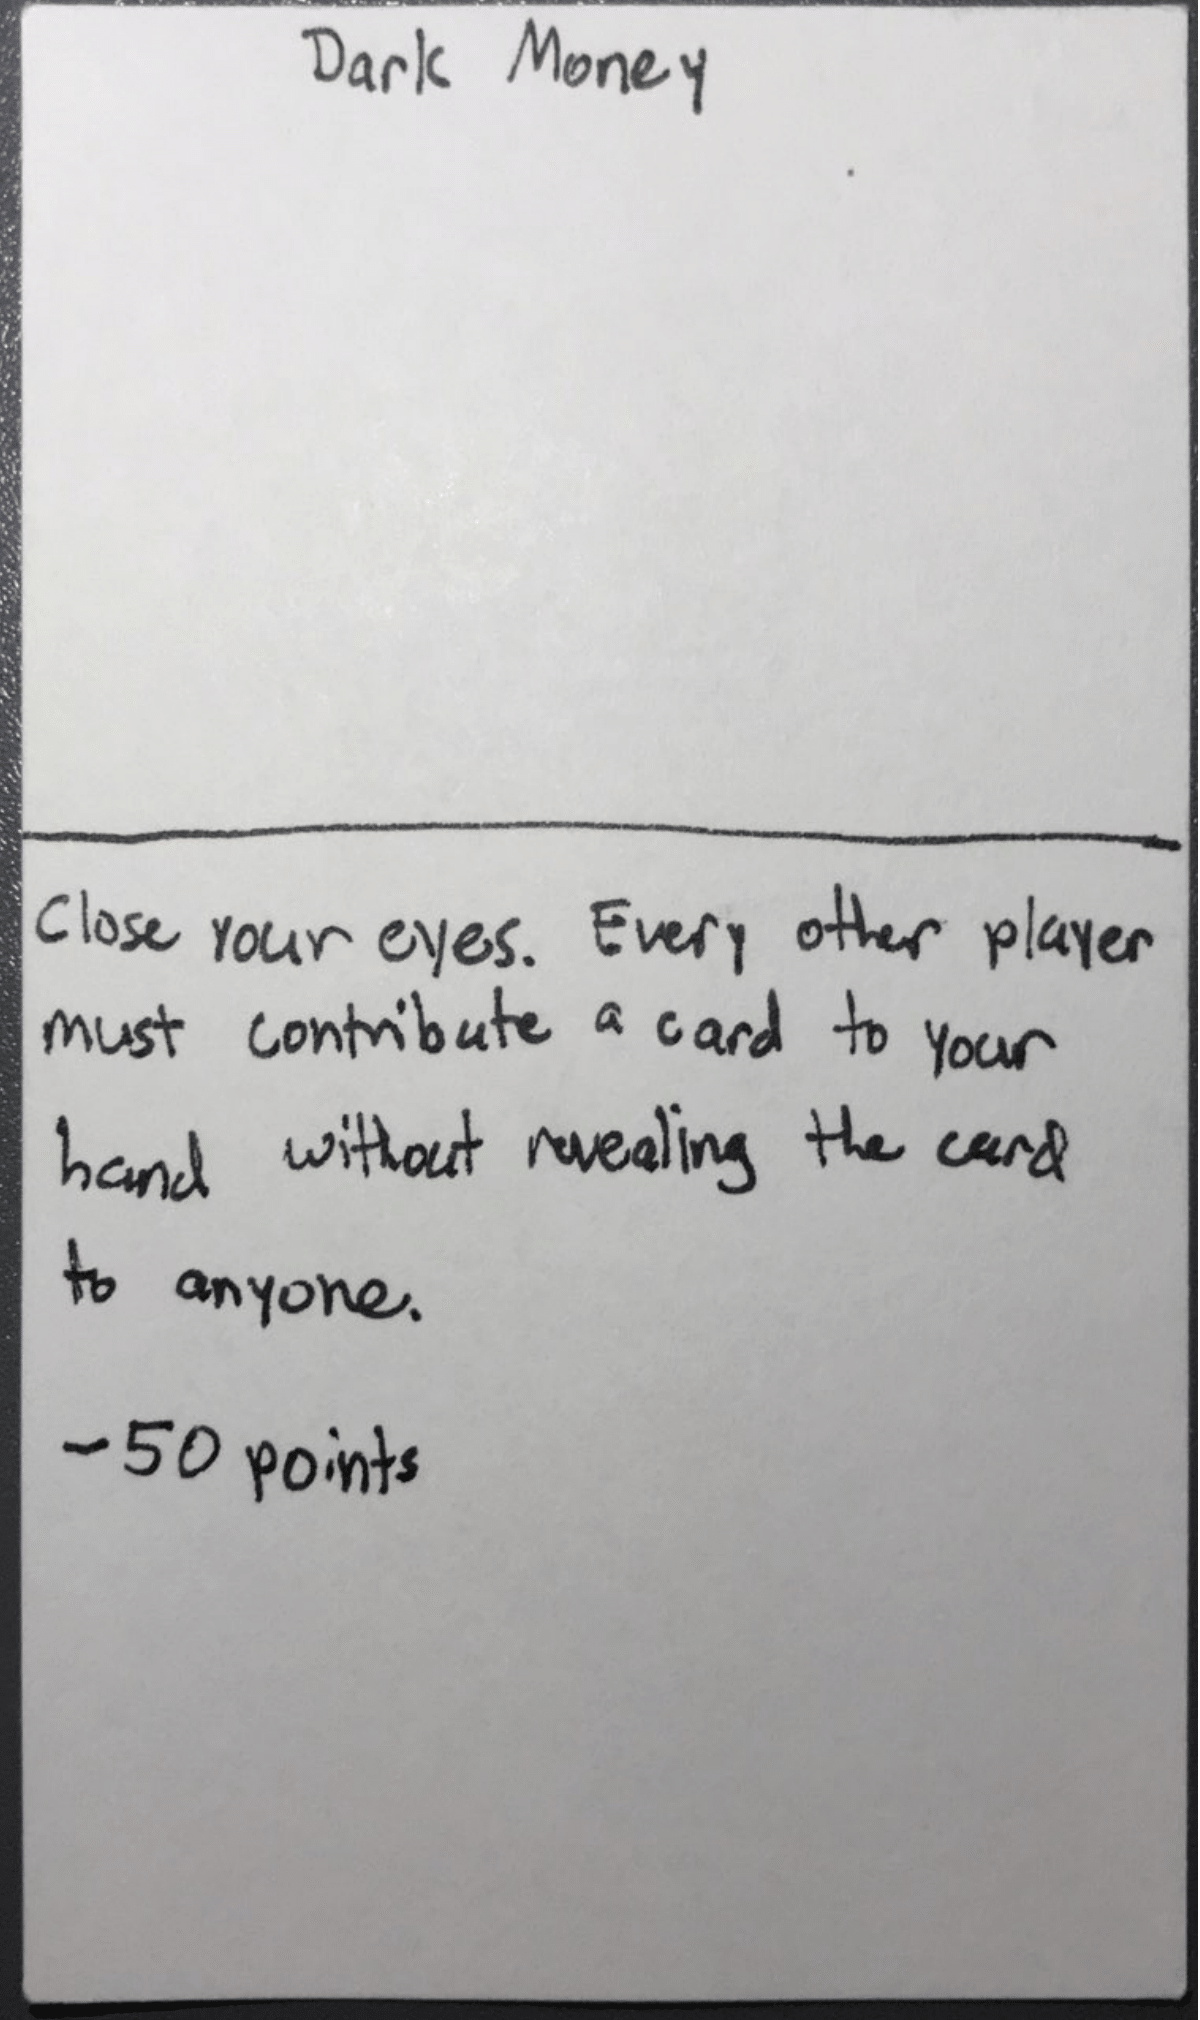 Dark Money
Close your eyes. Every other player
must contribute a card to your
hand without revealing the card
to anyone.
-50 points